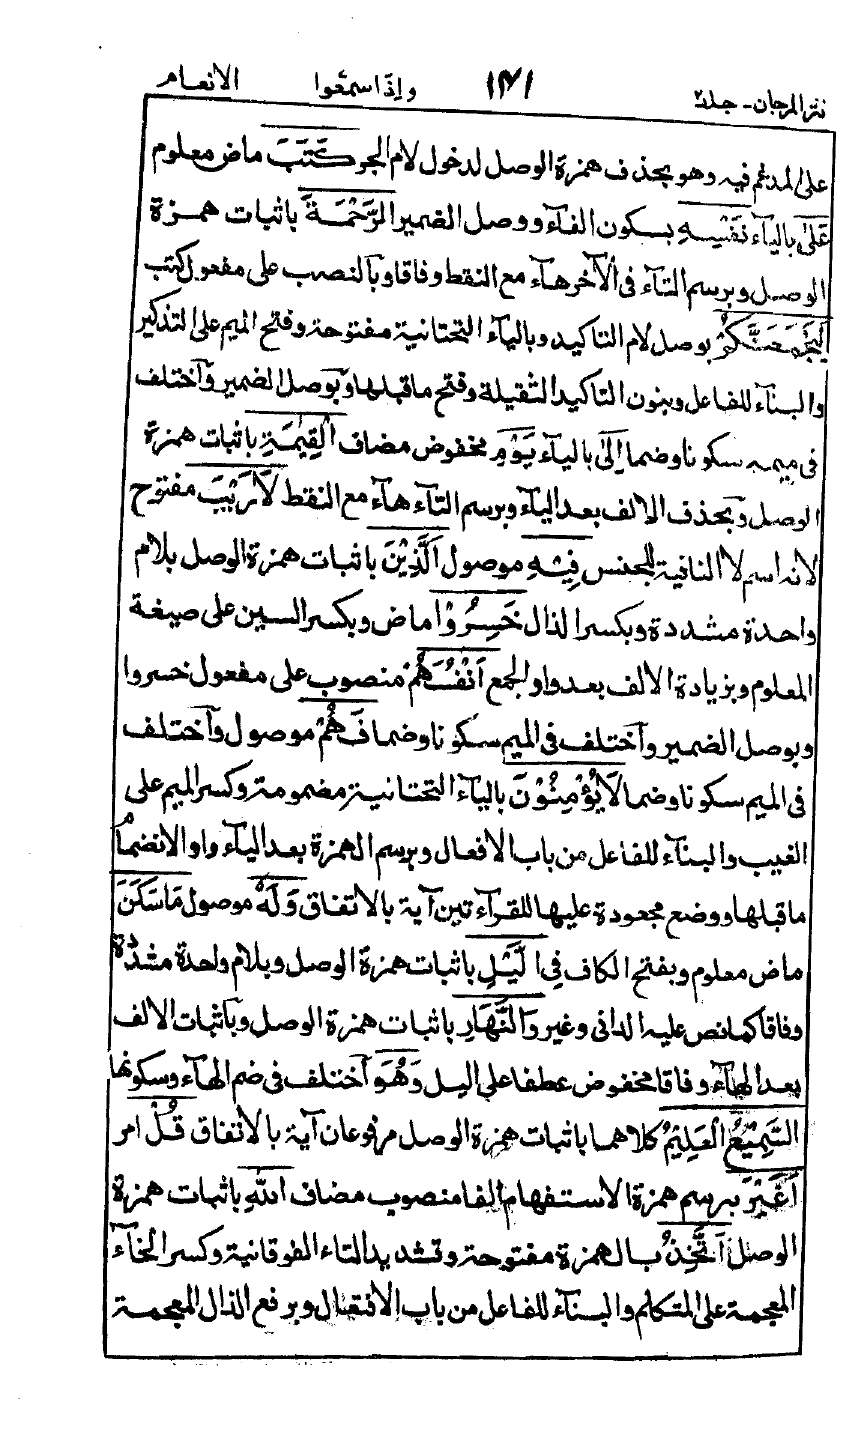 نثر المرجان - جلد٢ ١٤١ واذا سمعوا الانعام
على المدغم فيه وهو بحذف همزة الوصل لدخول لام الجر كَتَبَ ماض معلوم
عَلىٰ بالياء نَفْسِهِ بسكون الفآء ووصل الضمير الرَّحْمَةَ باثبات همزة
الوصل وبرسم التآء فى الآخر هآء مع النقط وفاقا وبالنصب على مفعول كتب
لَيَجْمَعَنَّكُمْ بوصل لام التاكيد وبالياء التحتانية مفتوحة وفتح الميم على التذكير
والبنآء للفاعل وبنون التاكيد الثقيلة وفتح ما قبلها وبوصل الضمير وآختلف
فى ميمه سكونا وضما إِلىٰ بالياء يَوْمِ مخفوض مضاف الْقِيٰمَةِ باثبات همزة
الوصل وبحذف الالف بعد اليآء وبرسم التآء هآء مع النقط لَا رَيْبَ مفتوح
لانه اسم لا النافية للجنس فِيْهِ موصول اَلَّذِيْنَ باثبات همزة الوصل بلام
واحدة مشددة وبكسر الذال خَسِرُوْا ماض وبكسر السين على صيغة
المعلوم وبزيادة الالف بعد واو الجمع اَنْفُسَهُمْ منصوب على مفعول خسروا
وبوصل الضمير وآختلف فى الميم سكونا وضما فَهُمْ موصول وآختلف
فى الميم سكونا وضما لَا يُؤْمِنُوْنَ بالياء التحتانية مضمومة وكسر الميم على
الغيب والبنآء للفاعل من باب الافعال وبرسم الهمزة بعد اليآء واو الانضمام
ما قبلها ووضع مجعودة عليها للقرآءتين آية بالاتفاق وَلَهٗ موصول مَا سَكَنَ
ماض معلوم وبفتح الكاف فِى الَّيْلِ باثبات همزة الوصل وبلام واحدة مشددة
وفاقا كما نص عليه الدانى وغيره وَالنَّهَارِ باثبات همزة الوصل وباثبات الالف
بعد الهآء وفاقا مخفوض عطفا على اليل وَهُوَ آختلف فى ضم الهآء وسكونها
السَّمِيْعُ الْعَلِيْمُ كلاهما باثبات همزة الوصل مرفوعان آية بالاتفاق قُلْ امر
اَغَيْرَ برسم همزة الاستفهام الفا منصوب مضاف اللّٰهِ باثبات همزة
الوصل اَتَّخِذُ بالهمزة مفتوحة وتشديد التاء الفوقانية وكسر الخآء
المعجمة على المتكلم والبنآء للفاعل من باب الافتعال وبرفع الذال المعجمة